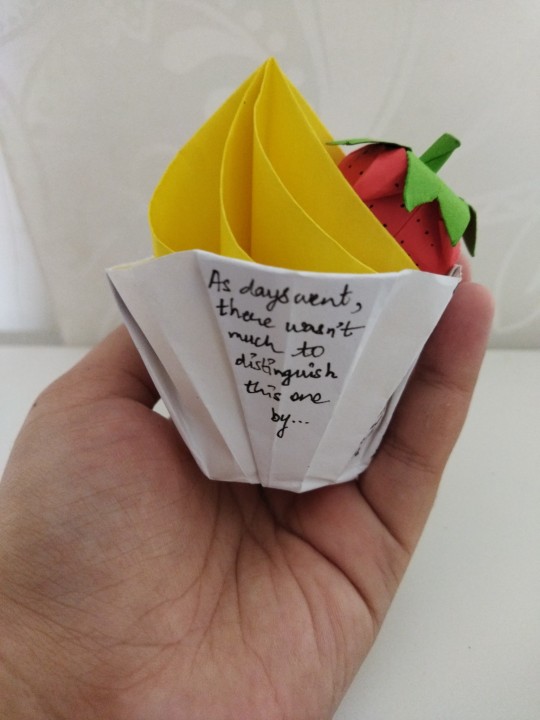 As days went,
there wasn't
much to
distinguish
this one
by...